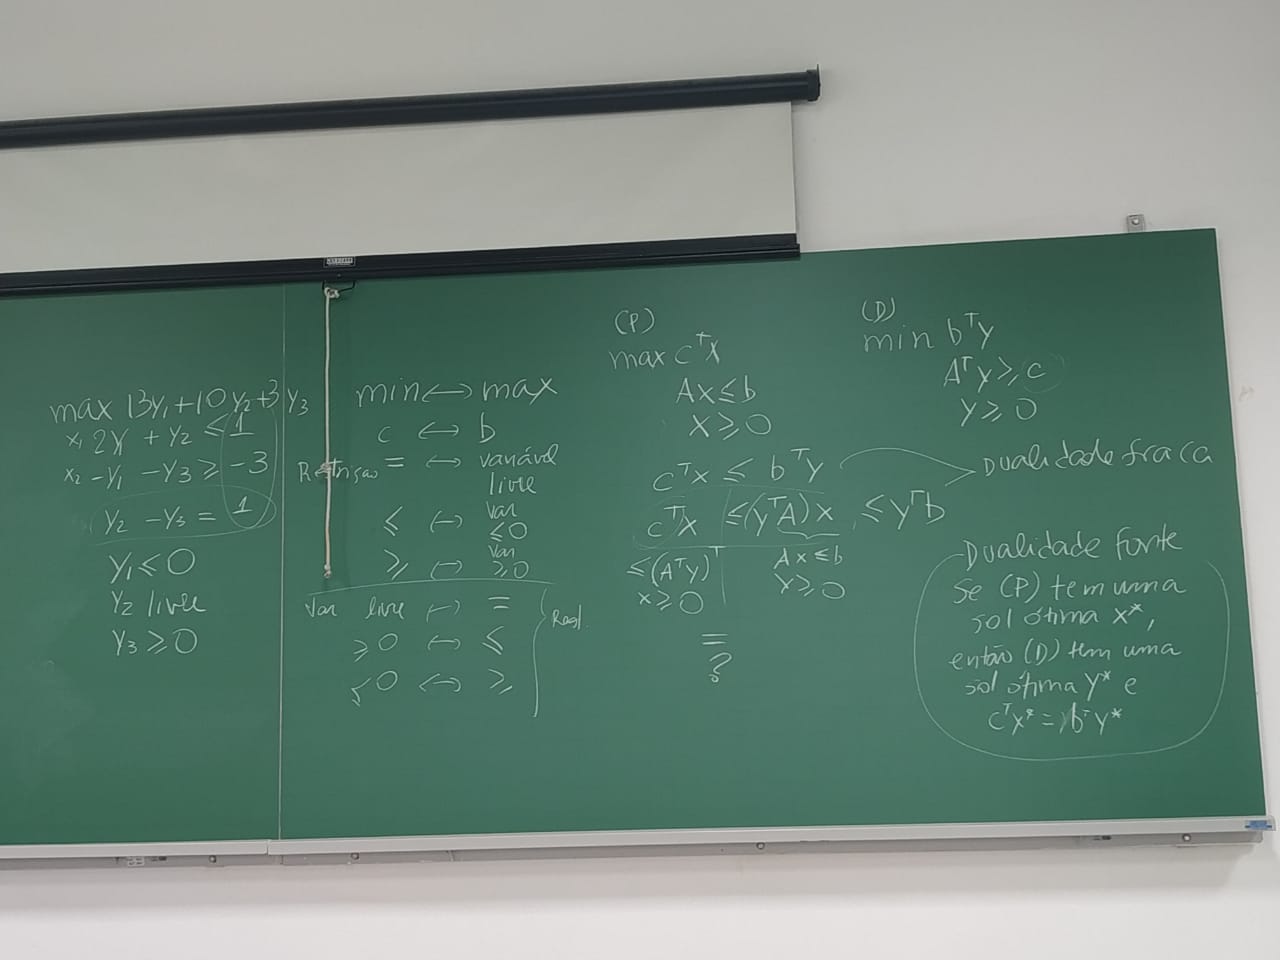 max 13y₁+10y₂+3y₃
x₁ 2y₁ + y₂ ≤ 1
x₂ -y₁ -y₃ ≥ -3
y₂ -y₃ = 1
y₁ ≤ 0
y₂ livre
y₃ ≥ 0
min ↔ max
c ↔ b
Restrição = ↔ variável
livre
≤ ↔ var
≤0
≥ ↔ var
≥0
Var livre ↔ =
≥0 ↔ ≤
≤0 ↔ ≥
(P)
max cᵀx
Ax ≤ b
x ≥ 0
(D)
min bᵀy
Aᵀy ≥ c
y ≥ 0
cᵀx ≤ bᵀy
Dualidade fraca
cᵀx ≤(yᵀA)x ≤ yᵀb
≤(Aᵀy)ᵀ
x ≥ 0
Ax ≤ b
y ≥ 0
=
?
Dualidade forte
Se (P) tem uma
sol ótima x*,
então (D) tem uma
sol ótima y* e
cᵀx* = bᵀy*